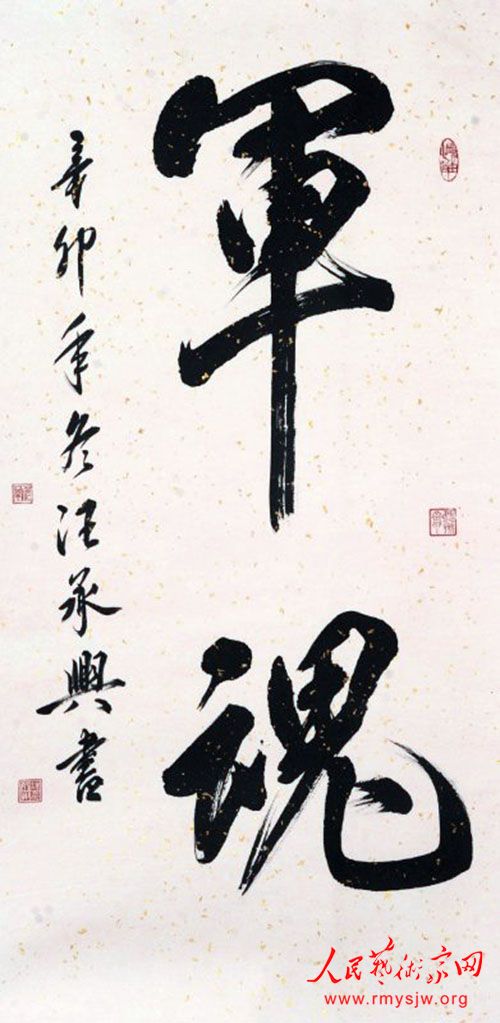 軍魂
辛卯年冬汪承興書
人民藝術家网
www.rmysjw.org